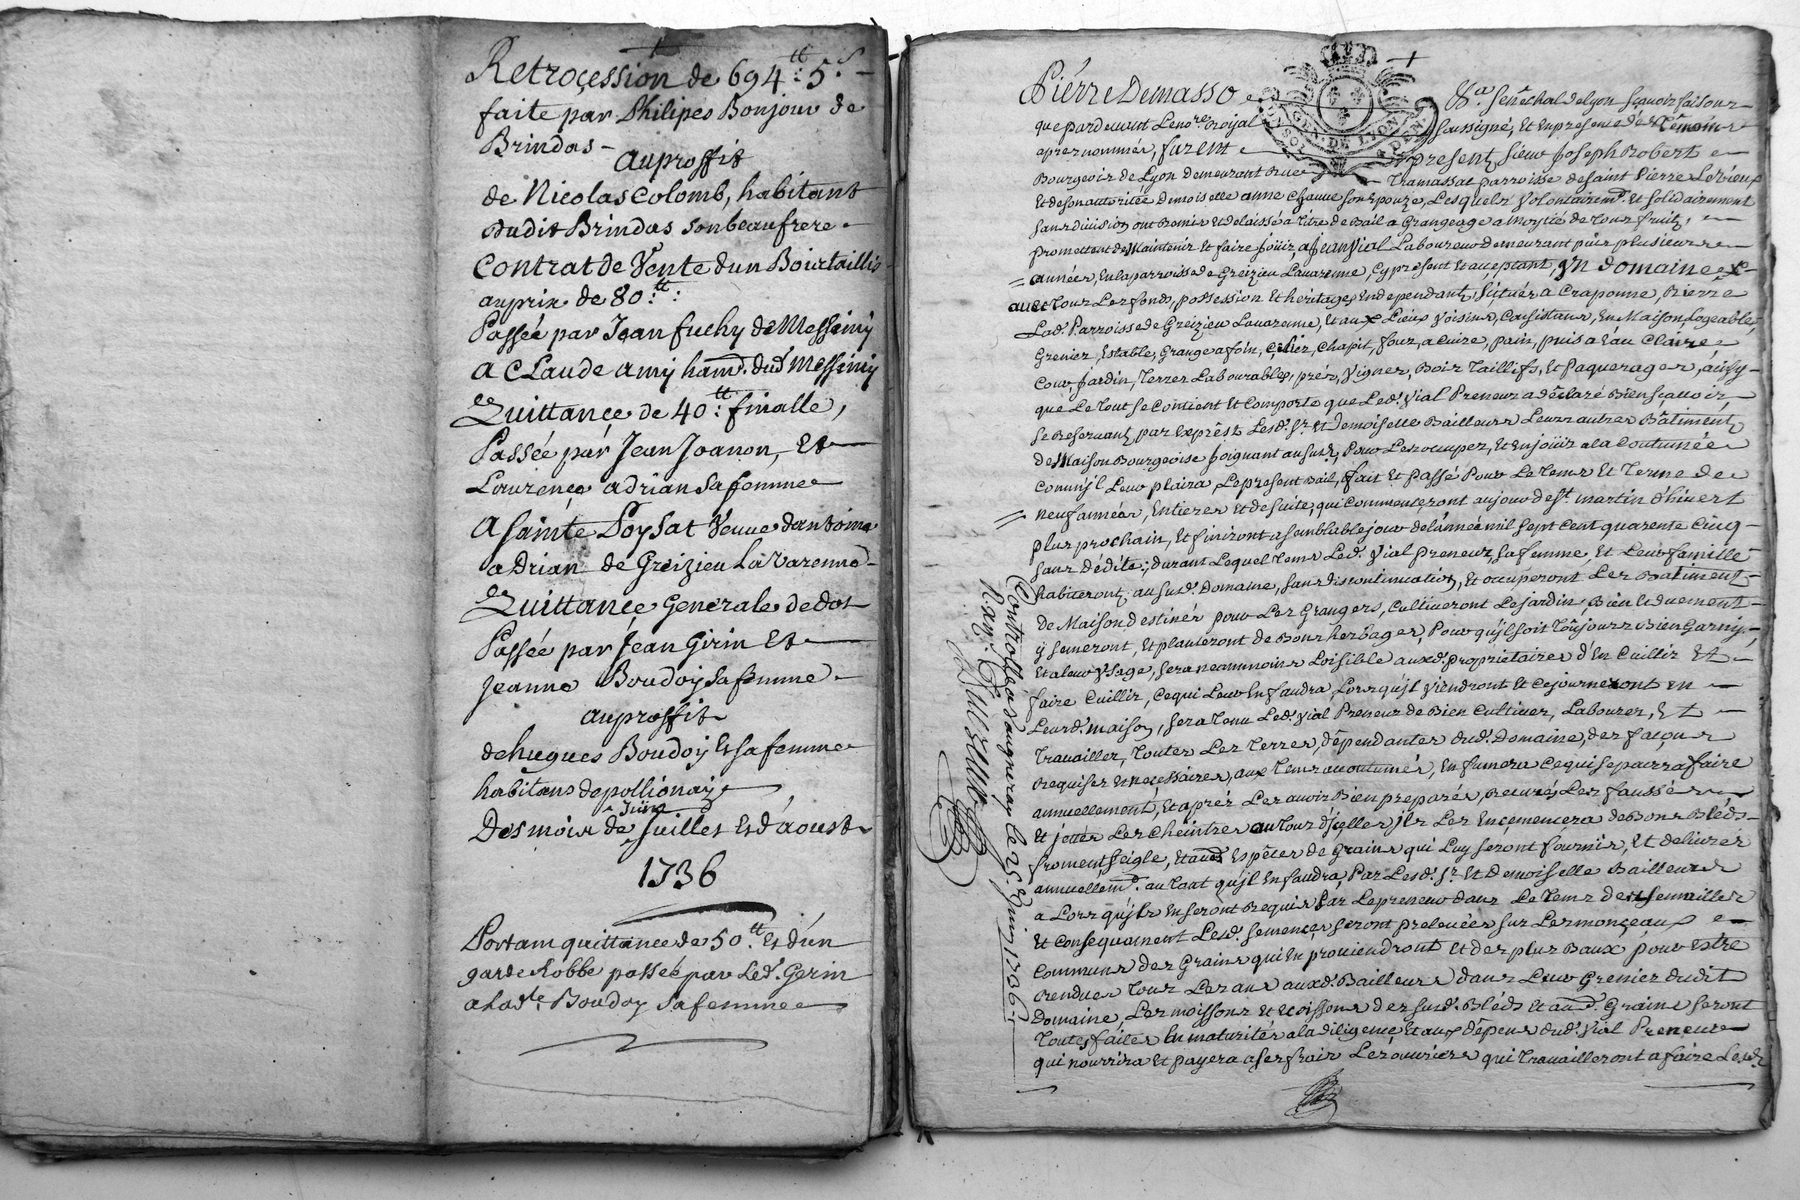 Retrocession de 694tt: 5s
faite par Philipes Bonjour de
Brindas -
auproffit
de Nicolas Colomb, habitant
dudit Brindas son beaufrere
Contrat de Vente dun Bois taillis
auprix de 80:tt:
Passée par Jean fuchy de Messimy
a Claude amy ham. dud. Messimy
Quittance de 40:tt finalle,
Passée par Jean Joanon, et
Laurence adrian sa femme
a sainte Loysat Veuve dantoine
adrian de Greizieu La Varenne
Quittance Generale de dot
Passée par Jean Girin et
Jeanne Boudoy sa femme
auproffit
de hugues Boudoy et sa femme
habitans de pollionay
Juin
Des mois de Juillet et d'aoust
1736
Portant quittance de 50:tt et d'un
garde Robbe passée par Led. Gerin
a Lad.te Boudoy sa femme
Pierre Demasso
Senechal de Lyon sçavoir faisons
que pardevant Le nore. Royal soussigné, et en presence de temoins
apres nommés, furent present, Sieur Joseph Robert
Bourgeois de Lyon demeurant Rue Tramassat parroisse de saint Pierre Le Vieux
et de son autorité Demoiselle anne Chauve son Epouze, Lesquels Volontairemt. et solidairement
sans division ont Remis et delaissé a titre de Bail a Grangeage a moytié de tous fruits,
Promettent de Maintenir et faire jouir, a Jean Vial Laboureur demeurant puis plusieurs
années, en la parroisse de Greizieu Lavarenne, cy present et acceptant, un domaine
avec tous Les fonds, possession et heritages en dependant, situés a Craponne,
Lad. Parroisse de Greizieu Lavarenne, et aux Lieux Voisins, Consistant, en Maison, Logeable,
Grenier, Estable, Grange a foin, Cellier, Chapit, four, a Cuire, pain, puis a Eau Claire
Cour, Jardin, terres Labourables, prés, Vignes, Bois taillifs, et Paquerages, ainsy
que Le tout se Contient et Comporte que Led. Vial Preneur a declaré Bien sçavoir
se Reservant, par Exprest Lesd. Sr. et Demoiselle Bailleurs Leurs autres Bâtiments
de Maison Bourgeoise joignant au susd. Pour Les occuper, et en jouir a la Coutumée
Comm'il Leur plaira, Le present Bail, fait et Passé Pour Le tems et terme de
neuf années, Entieres et de suite, qui Commenceront au jour de St. martin d'hivert
plus prochain, et finiront a semblable jour de l'année mil sept Cent quarente Cinq
sans dédite; durant Lequel tems Led. Vial preneur, sa femme, et Leur famille
habiteront, au susd. Domaine, sans discontinuation, et occuperont Les Batiment
de Maison destinés pour Les Grangers, Cultiveront Le jardin Bien et duement
y semeront, et planteront de Bons herbages, Pour qu'il soit toujours Bien Garny,
et a leur Usage, sera neanmoins Loisible auxd. proprietaires d'En Cuillir et
faire Cuillir, Ce qui Leur En faudra, Lors qu'il Viendront et Cejourneront en
Leurd. maison, sera tenu Led. Vial Preneur de Bien Cultiver, Labourer, et
travailler, toutes Les terres, dependantes dud. Domaine, des façons
Requises et necessaires, aux tems accoutumés, En fumera Ce qui se pourra faire
annuellement, et aprés Les avoir Bien preparés, Recurés Les faussés
et jetter Les Cheintres au tour d'icelles, ils Les Encemencera de Bons Bleds
froment, seigle, et aues Especes de Grains qui Luy seront fournis, et delivrés
annuellemt. au tant qu'il En faudra, Par Lesd. Sr. et Demoiselle Bailleurs
a Lors qu'ils En seront Requis Par Le preneur dans Le tems des semailles
et Consequament Lesd. semences seront prelevées sur Les monçeaux
Communs des Grains qui En proviendront et des plus Baux pour estre
Rendues tous Les ans auxd. Bailleurs dans Leur Grenier dudit
Domaine, Les moissons et des susd. Bleds et aues. Grains seront
toutes faites En maturités a la diligence, et aux dépens dud. Vial Preneur
qui nourrira et payera a ses frais Les ouvriers qui travailleront a faire Lesd.
Controllé a Vaugneray le 25. Juin 1736.